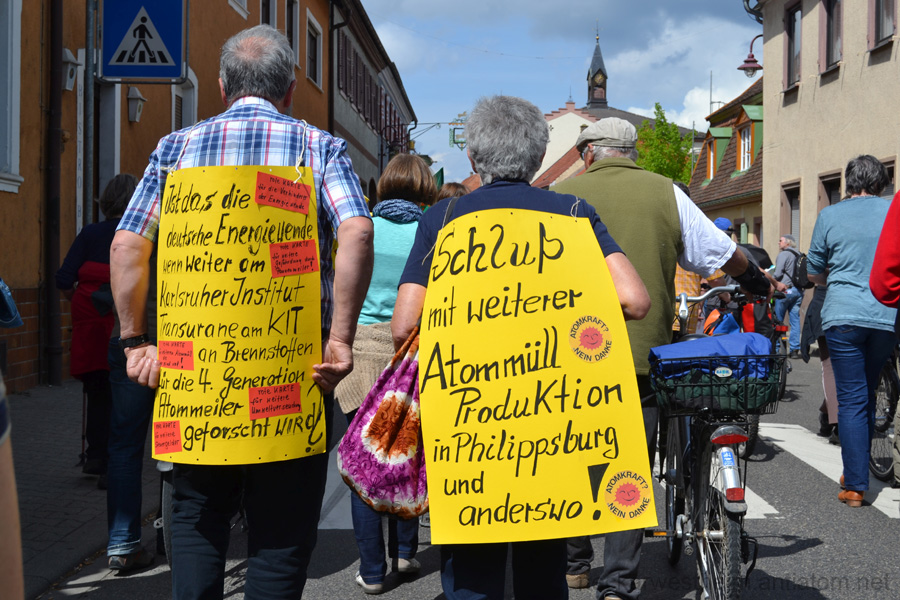 Ist das die
deutsche Energiewende
wenn weiter am
Karlsruher Institut
Transurane am KIT
an Brennstoffen
für die 4. Generation
Atommeiler
geforscht wird?!
rote Karte
für die
Energiewende
rote Karte
rote Karte
für weitere
Schluß
mit weiterer
Atommüll
Produktion
in Philippsburg
und
anderswo!
ATOMKRAFT?
NEIN DANKE
ATOMKRAFT?
NEIN DANKE
antiatom.net